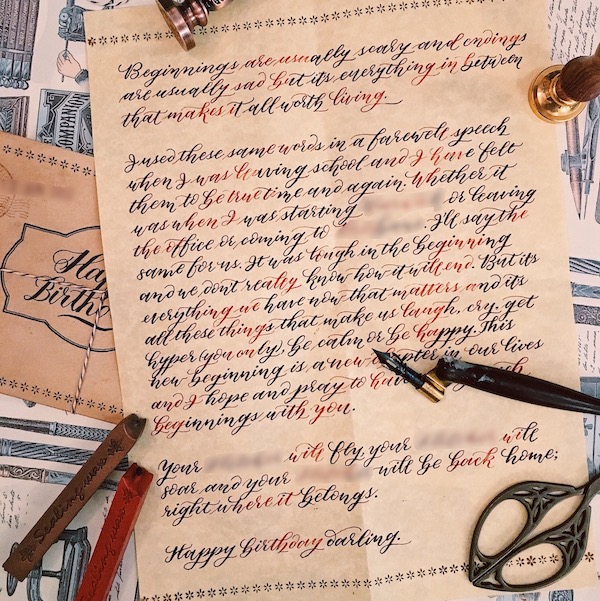 Beginnings are usually scary and endings
are usually sad but its everything in between
that makes it all worth living.
I used these same words in a farewell speech
when I was leaving school and I have felt
them to be true time and again. Whether it
was when I was starting or leaving
the office or, coming to . I'll say the
same for us. It was tough in the beginning
and we don't really know how it will end. But its
everything we have now that matters and its
all these things that make us laugh, cry, get
hyper (you only), be calm or be happy. This
new beginning is a new chapter in our lives
and I hope and pray to have
beginnings with you.
Your will fly, your will
soar and your will be back home;
right where it belongs.
Happy Birthday darling.
Happy
Birthday
COMPANION
Sealing wax
Sealing wax